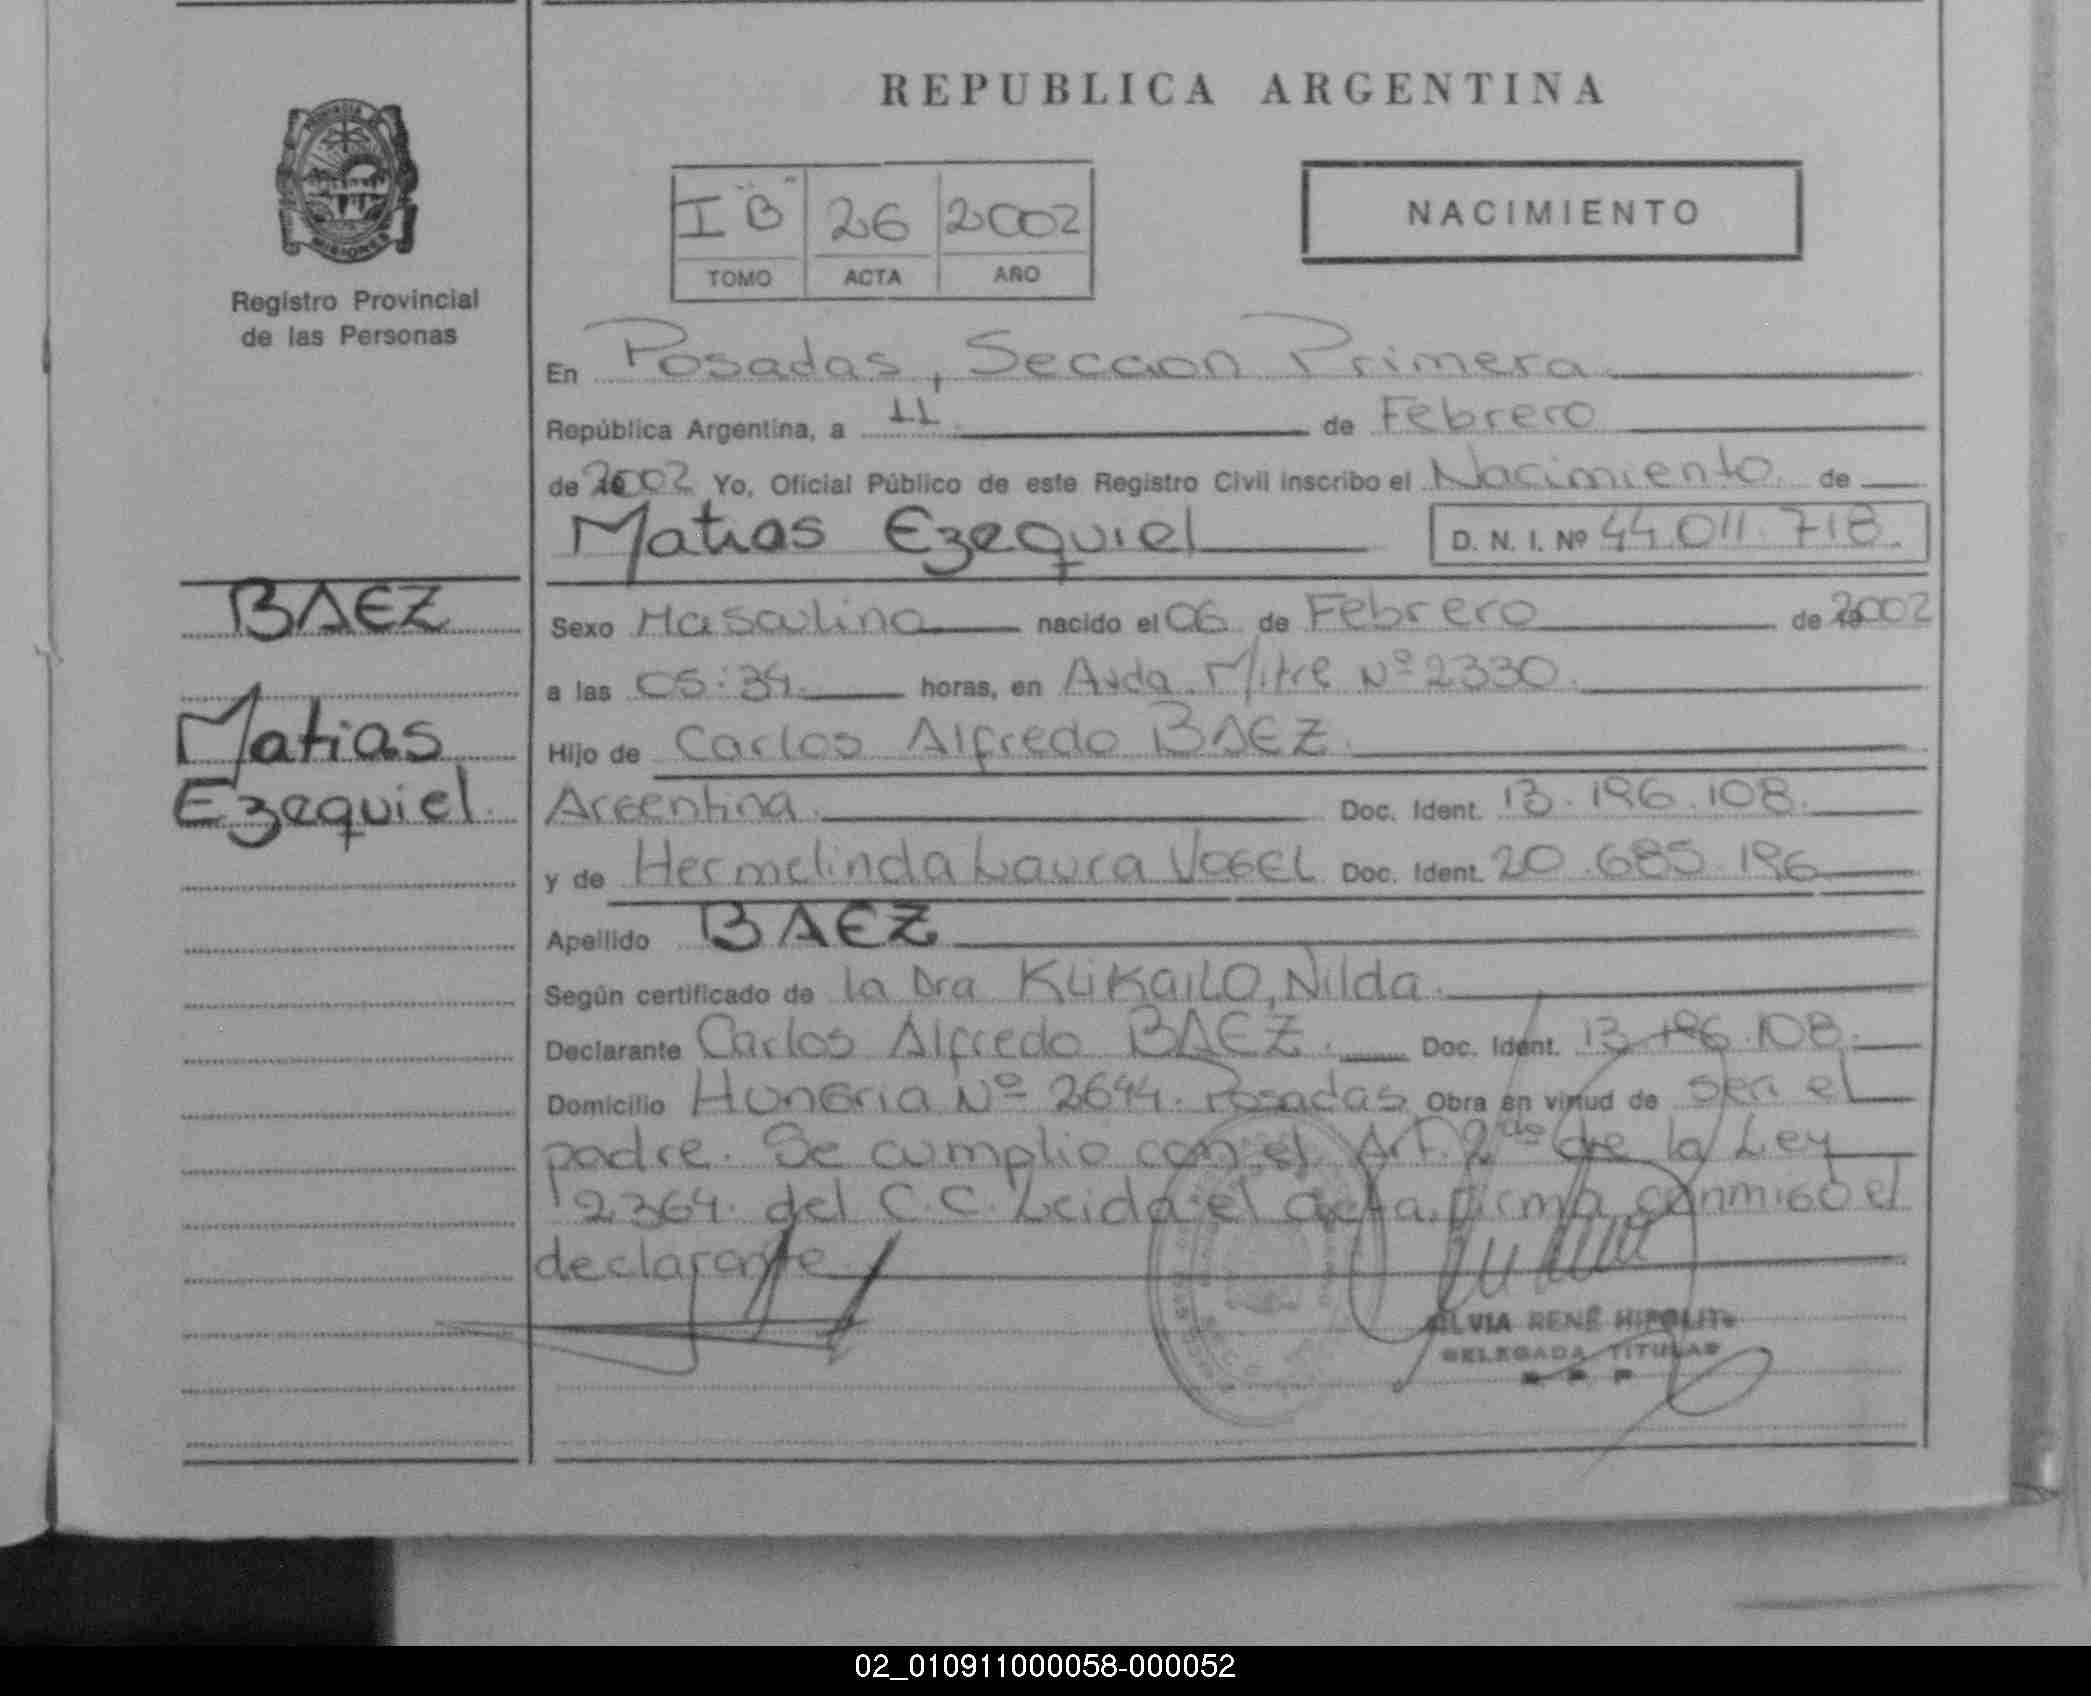 REPUBLICA ARGENTINA
PROVINCIA
MISIONES
Registro Provincial
de las Personas
I "B" 26 2002
TOMO ACTA AÑO
NACIMIENTO
En Posadas, Seccion Primera
República Argentina, a 11 de Febrero
de 2002 Yo, Oficial Público de este Registro Civil inscribo el Nacimiento de
Matias Ezequiel D. N. I. Nº 44.011.718.
BAEZ
Matias
Ezequiel
Sexo Masculino nacido el 06 de Febrero de 2002
a las 05:34 horas, en Avda. Mitre Nº 2330.
Hijo de Carlos Alfredo BAEZ.
Argentina. Doc. Ident. 13.196.108.
y de Hermelinda Laura VOGEL Doc. Ident. 20.685.196
Apellido BAEZ
Según certificado de la Dra KLIKAILO, Nilda.
Declarante Carlos Alfredo BAEZ. Doc. Ident. 13.196.108.
Domicilio Hungria Nº 2644. Posadas Obra en virtud de ser el
padre. Se cumplio con el Art. 2do de la Ley
12364. del C.C. Leida el acta firma conmigo el
declarante
SILVIA RENÉ HIPOLITO
DELEGADA TITULAR
02_010911000058-000052